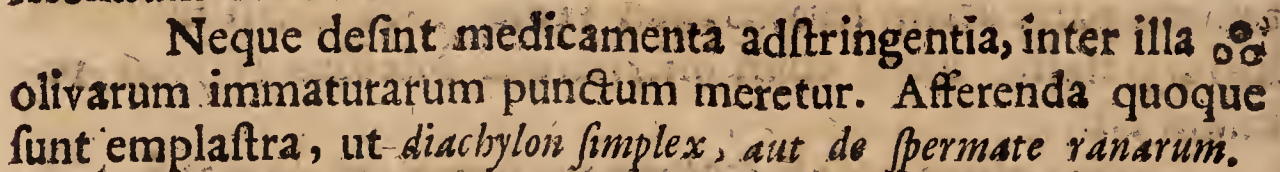 Neque deſint medicamenta adſtringentia, inter illa
olivarum immaturarum punctum meretur. Afferenda quoque
ſunt emplaſtra, ut diachylon ſimplex, aut de ſpermate ranarum.